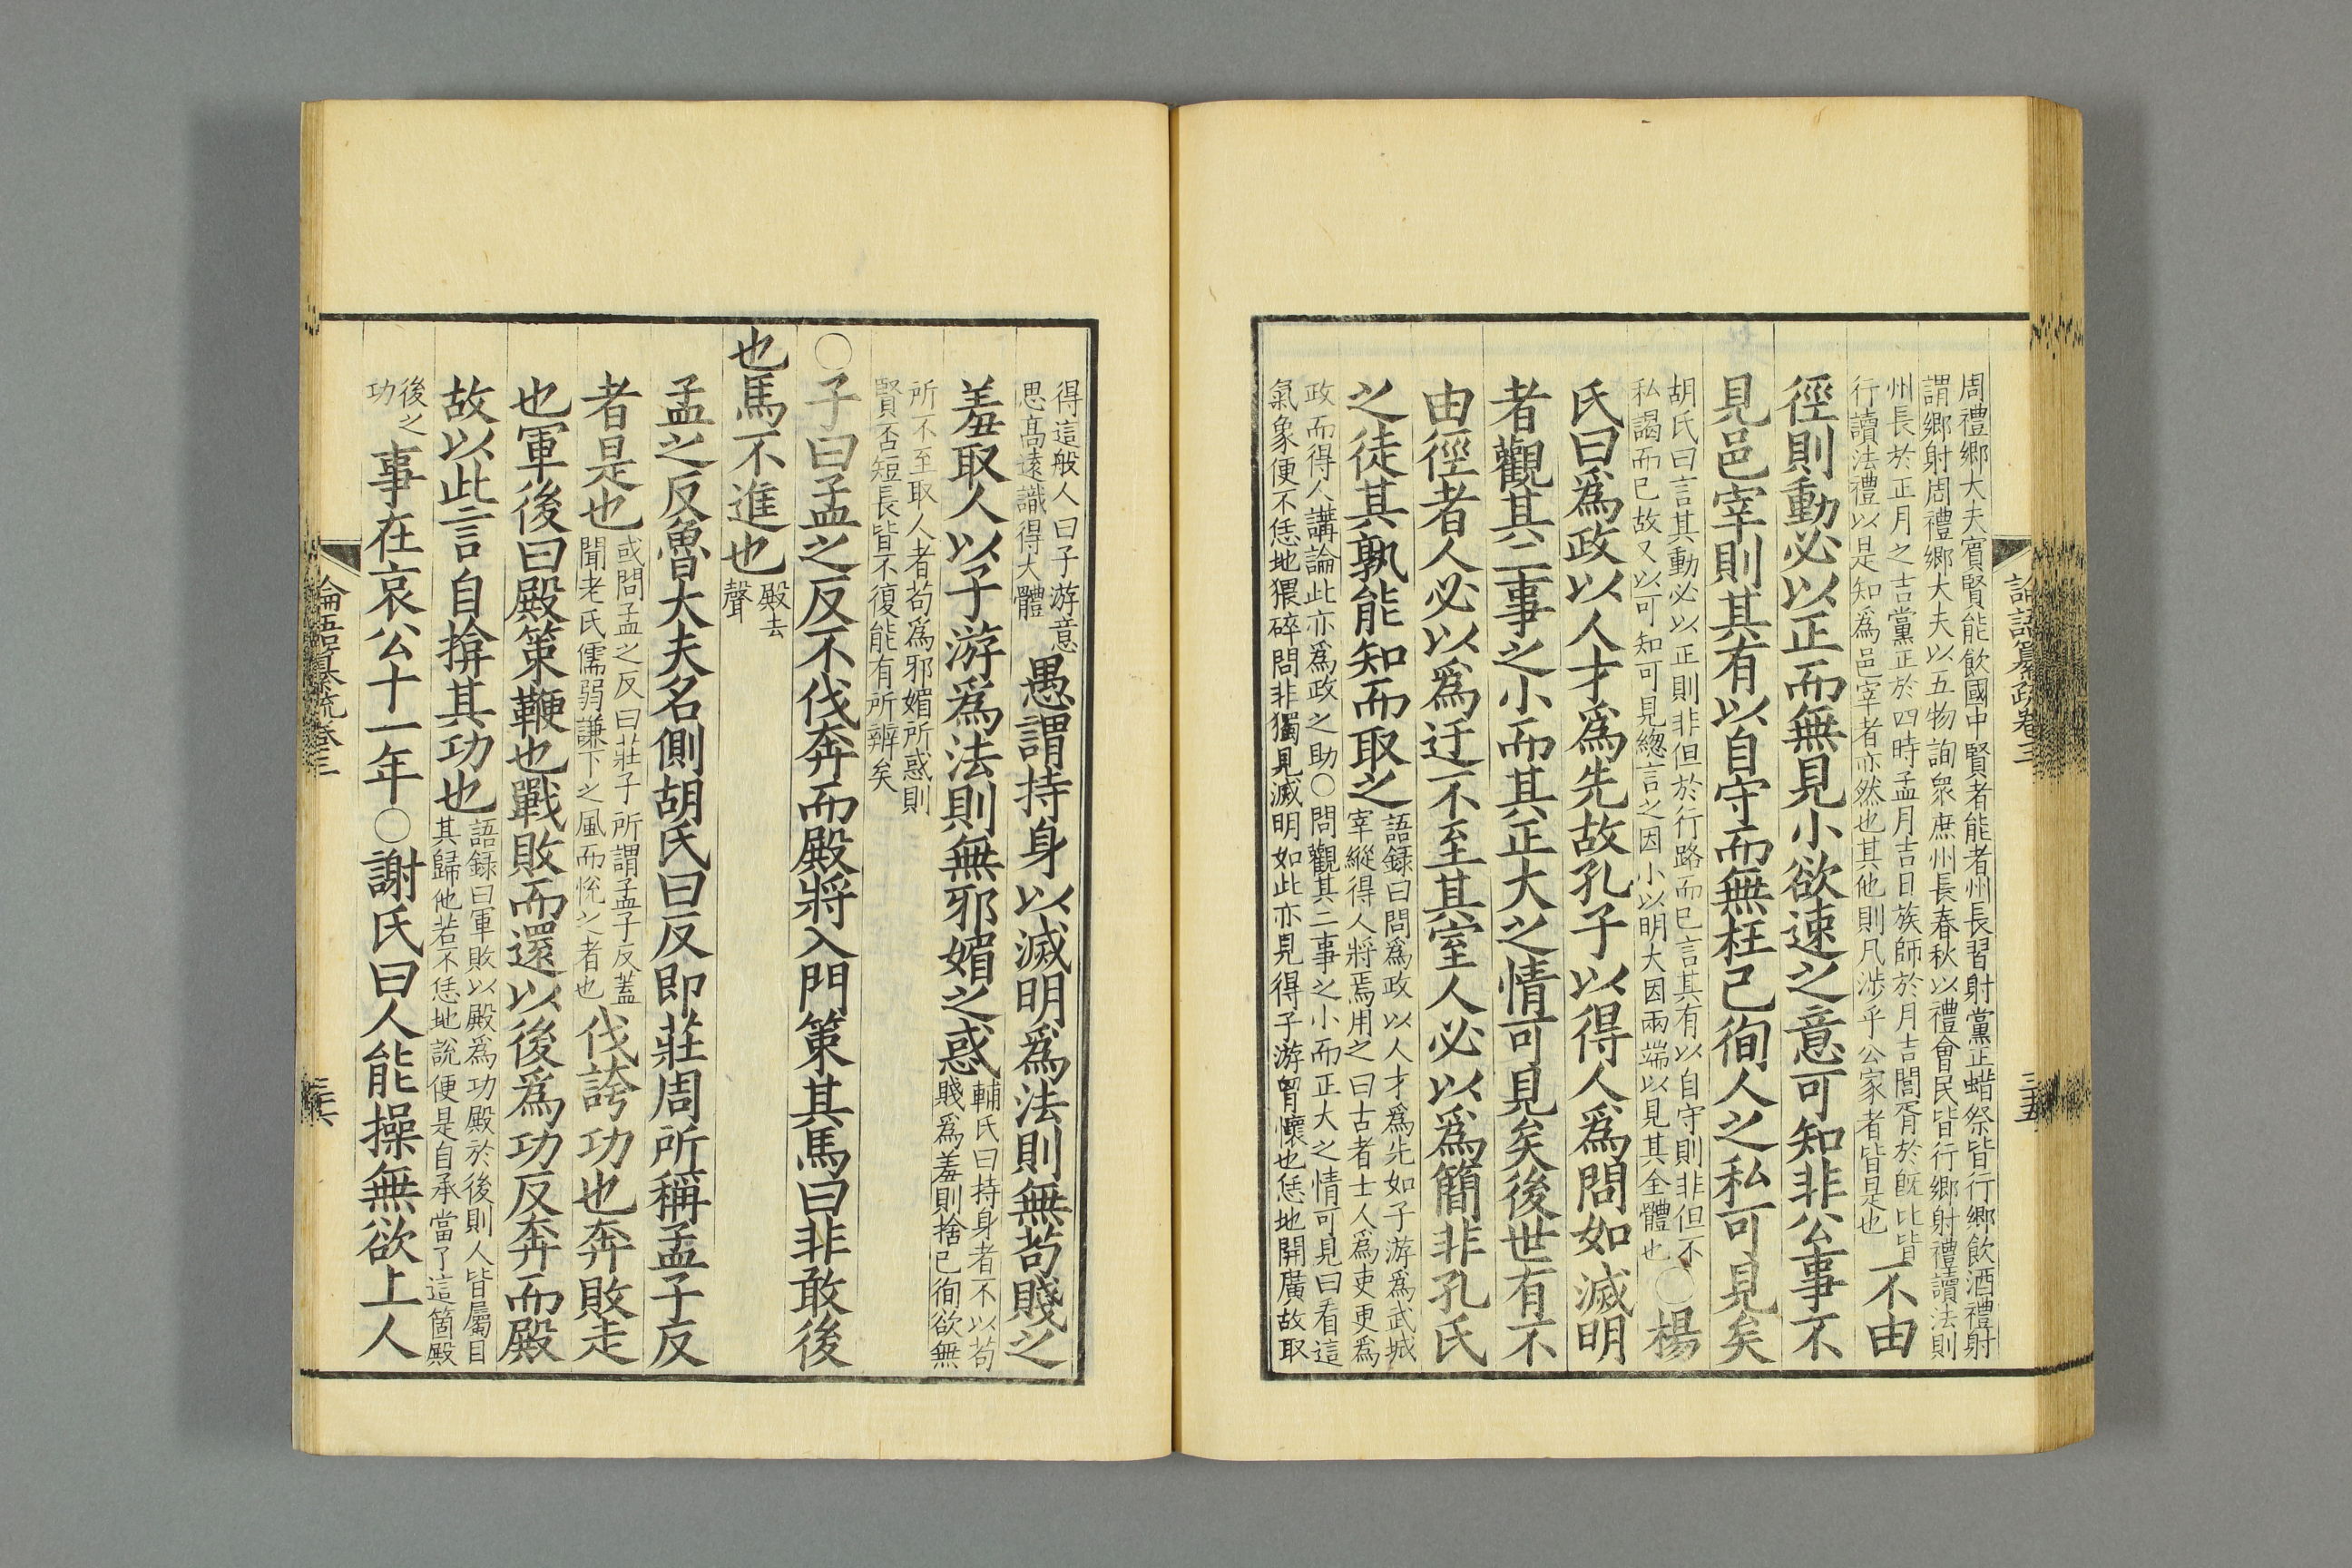 周禮鄉大夫賓賢能飲國中賢者能者州長習射黨正蜡祭皆行鄉飲酒禮射
謂鄉射周禮鄉大夫以五物詢衆庶州長春秋以禮會民皆行鄉射禮讀法則
州長於正月之吉黨正於四時孟月吉日族師於月吉閭胥於旣比皆
行讀法禮以是知爲邑宰者亦然也其他則凡涉乎公家者皆是也
不由
徑則動必以正而無見小欲速之意可知非公事不
見邑宰則其有以自守而無枉己徇人之私可見矣
胡氏曰言其動必以正則非但於行路而已言其有以自守則非但不
私謁而已故又以可知可見緫言之因小以明大因兩端以見其全體也
○楊
氏曰爲政以人才爲先故孔子以得人爲問如滅明
者觀其二事之小而其正大之情可見矣後世有不
由徑者人必以爲迂不至其室人必以爲簡非孔氏
之徒其孰能知而取之
語録曰問爲政以人才爲先如子游爲武城
宰縱得人將焉用之曰古者士人爲吏更爲
政而得人講論此亦爲政之助○問觀其二事之小而正大之情可見曰看這
氣象便不恁地猥碎問非獨見滅明如此亦見得子游胷懷也恁地開廣故取
論語纂疏卷三
三十五
得這般人曰子游意
思高遠識得大體
愚謂持身以滅明爲法則無苟賤之
羞取人以子游爲法則無邪媚之惑
輔氏曰持身者不以苟
賤爲羞則捨已徇欲無
所不至取人者苟爲邪媚所惑則
賢否短長皆不復能有所辨矣
○子曰孟之反不伐奔而殿將入門策其馬曰非敢後
也馬不進也
殿去
聲
孟之反魯大夫名側胡氏曰反即莊周所稱孟子反
者是也
或問孟之反曰莊子所謂孟子反蓋
聞老氏儒弱謙下之風而悅之者也
伐誇功也奔敗走
也軍後曰殿策鞭也戰敗而還以後爲功反奔而殿
故以此言自揜其功也
語録曰軍敗以殿爲功殿於後則人皆屬目
其歸他若不恁地說便是自承當了這箇殿
後之
功
事在哀公十一年○謝氏曰人能操無欲上人
論語纂疏卷三
三十六